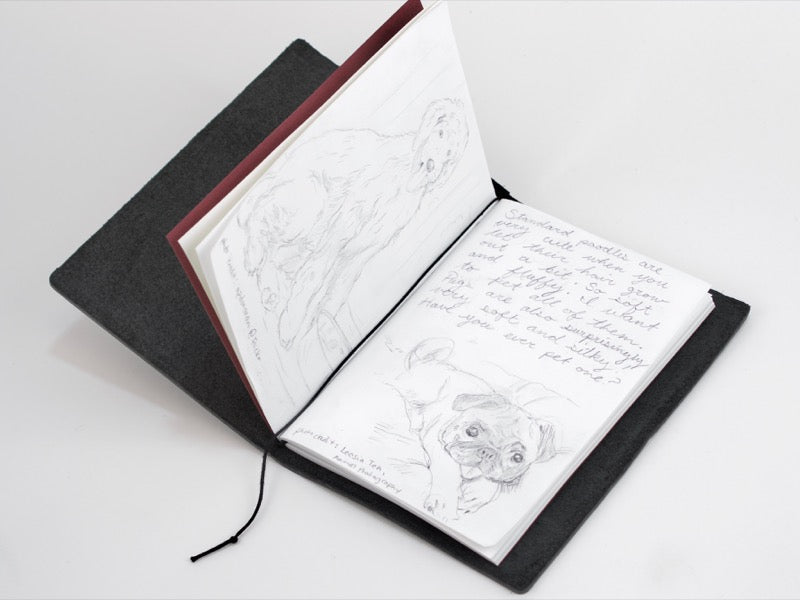 Standard poodles are
very cute when you
let their hair grow
out a bit. So soft
and fluffy. I want
to pet all of them.
Pugs are also surprisingly,
very soft and silky.
Have you ever pet one?
photo credit: Leesia Teh,
Photography